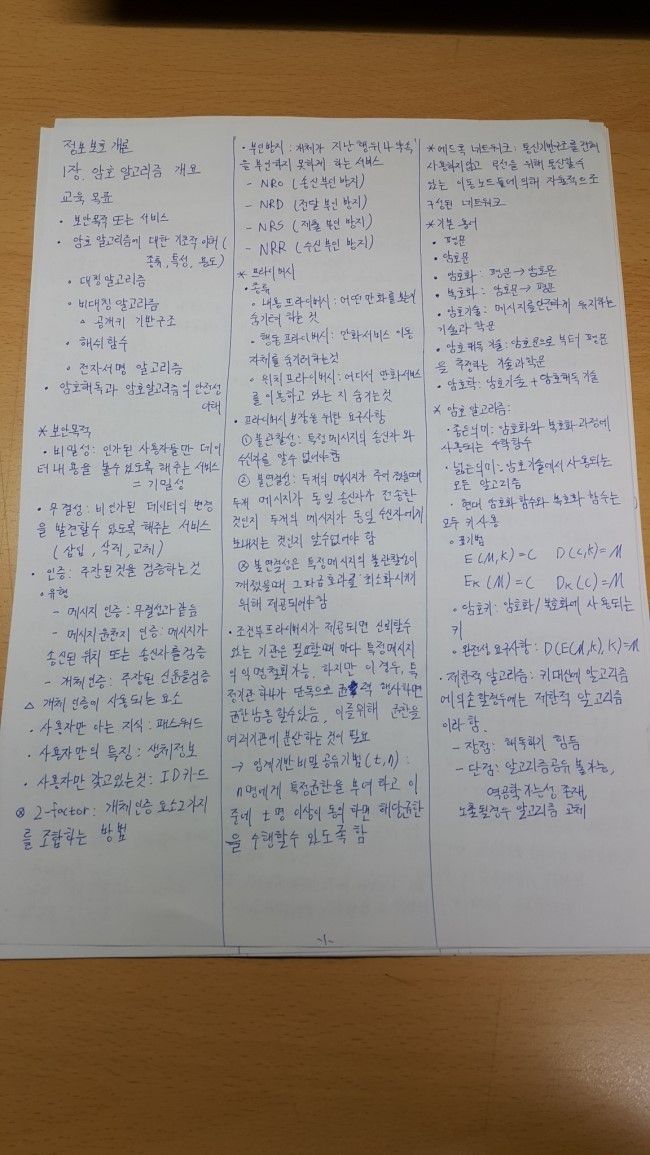 정보보호 개론
1장. 암호 알고리즘 개요
교육 목표
• 보안목적 또는 서비스
• 암호 알고리즘에 대한 기초적 이해 (
종류, 특성, 용도)
• 대칭 알고리즘
• 비대칭 알고리즘
△ 공개키 기반구조
• 해쉬함수
• 전자서명 알고리즘
• 암호해독과 암호알고리즘의 안전성
이해
* 보안목적
• 비밀성: 인가된 사용자들만 데이
터 내용을 볼수 있도록 해주는 서비스
= 기밀성
• 무결성: 비인가된 데이터의 변경
을 발견할수 있도록 해주는 서비스
(삽입, 삭제, 교체)
• 인증: 주장된것을 검증하는것
◦ 유형
- 메시지 인증: 무결성과 같음
- 메시지 원천지 인증: 메시지가
송신된 위치 또는 송신자를 검증
- 개체인증: 주장된 신원을 검증
△ 개체 인증에 사용되는 요소
• 사용자만 아는 지식: 패스워드
• 사용자만의 특징: 생체정보
• 사용자만 갖고있는것: ID카드
⊗ 2-factor: 개체인증 요소 2가지
를 조합하는 방법
• 부인방지: 개체가 지난 행위나 약속
을 부인하지 못하게 하는 서비스
- NRO (송신 부인 방지)
- NRD (전달 부인 방지)
- NRS (제출 부인 방지)
- NRR (수신 부인 방지)
* 프라이버시
• 종류
◦ 내용 프라이버시: 어떤 만화를 보는지
숨기려 하는 것
• 행동 프라이버시: 만화서비스 이용
자체를 숨기려하는것
• 위치 프라이버시: 어디서 만화서비스
를 이용하고 있는 지 숨기는것
• 프라이버시 보장을 위한 요구사항
① 불관찰성: 특정 메시지의 송신자 와
수신자를 알수 없어야 함
② 불연결성: 두개의 메시지가 주어 졌을때
두개 메시지가 동일 송신자가 전송한
것인지 두개의 메시지가 동일 수신자에게
보내지는 것인지 알수없어야 함
⊗ 불연결성은 특정메시지의 불관찰성이
깨졌을때 그 파급효과를 최소화 시키기
위해 제공되어야 함
• 조건부 프라이버시가 제공되면 신뢰할수
있는 기관은 필요할 때 마다 특정메시지
의 익명 철회가능. 하지만 이 경우, 특
정기관 하나가 단독으로 권력 행사하면
권한남용 할수있음, 이를위해 권한을
여러기관에 분산하는 것이 필요
→ 임계기반 비밀 공유기법 (t, n):
n명에게 특정권한을 부여 하고 이
중에 t명 이상이 동의 하면 해당권한
을 수행할수 있도록 함
* 에드혹 네트워크: 통신기반구조를 전혀
사용하지않고 무선을 위해 통신할수
있는 이동노드들에 의해 자율적으로
구성된 네트워크
* 기본 용어
• 평문
• 암호문
• 암호화: 평문 → 암호문
• 복호화: 암호문 → 평문
• 암호기술: 메시지를 안전하게 유지하는
기술과 학문
• 암호해독 기술: 암호문으로 부터 평문
을 추정하는 기술과 학문
• 암호학: 암호기술 + 암호해독 기술
* 암호 알고리즘:
• 좁은의미: 암호화와 복호화 과정에
사용되는 수학함수
• 넓은의미: 암호기술에서 사용되는
모든 알고리즘
• 현대 암호화 함수와 복호화 함수는
모두 키 사용
◦ 표기법
E(M,K)=C D(C,K)=M
Eĸ(M)=C Dĸ(C)=M
◦ 암호키: 암호화/복호화에 사용되는
키
◦ 완전성 요구사항: D(E(M,K),K)=M
• 제한적 알고리즘: 키대신에 알고리즘
에 의존할경우에는 제한적 알고리즘
이라 함.
- 장점: 해독하기 힘듬
- 단점: 알고리즘공유 불가능,
역공학 가능성 존재,
노출될경우 알고리즘 교체
-1-